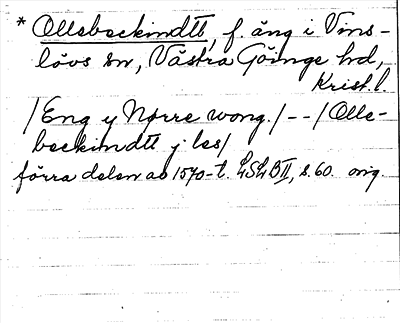 * Ollebeckindtt, f. äng i Vins-
lövs sn, Västra Göinge hd,
Krist. l.
/Eng y Norre wong./ -- /Olle-
beckindtt j. les/
förra delen av 1570-t. LSLB II, s. 60. orig.